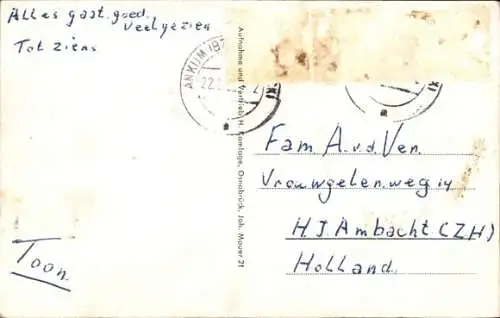 Alles gaat goed.
veel gezien
Tot ziens
Toon.
ANKUM (BZ
22.
Aufnahme und Vertrieb: H. Kamlage, Osnabrück, Joh. Mauer 21
Fam A.v.d. Ven.
Vrouwgelenweg 14
H.J. Ambacht (ZH)
Holland.